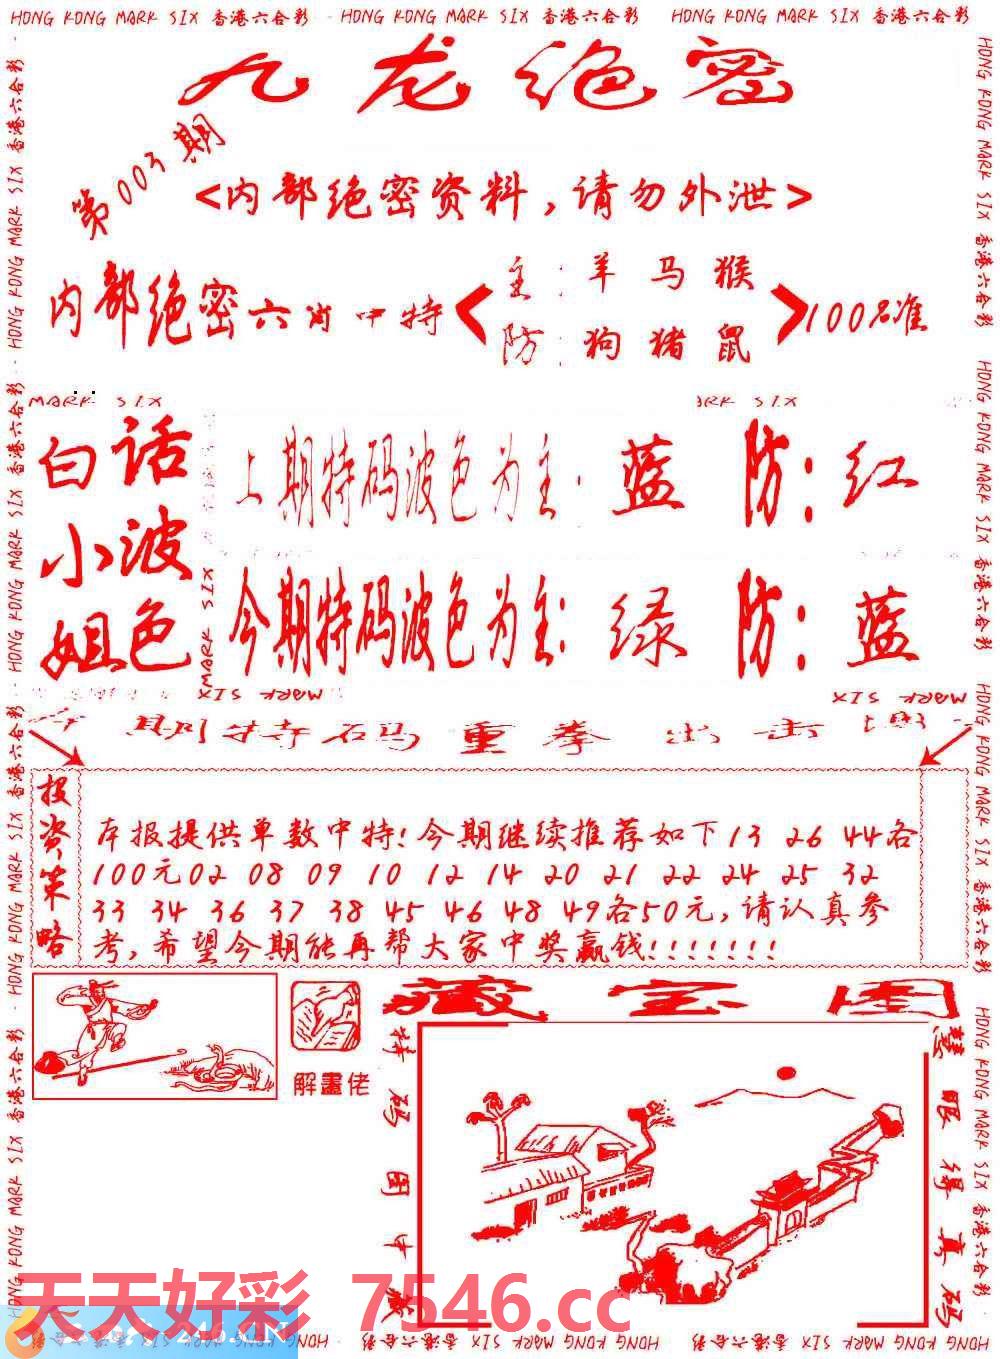 HONG KONG MARK SIX 香港六合彩 HONG KONG MARK SIX 香港六合彩 HONG KONG MARK SIX 香港六合彩
九龙绝密
第003期
<内部绝密资料,请勿外泄>
内部绝密六肖中特
主:羊 马 猴
防:狗 猪 鼠
100%准
MARK SIX
白话
小波
姐色
上期特码波色为主: 蓝 防: 红
今期特码波色为主: 绿 防: 蓝
MARK SIX
期特码重拳出击
投资策略
本报提供单数中特!今期继续推荐如下13 26 44各
100元02 08 09 10 12 14 20 21 22 24 25 32
33 34 36 37 38 45 46 48 49各50元,请认真参
考,希望今期能再帮大家中奖赢钱!!!!!!!
解畫佬
藏宝图
特码图中藏
慧眼得真码
天天好彩 7546.cc
HONG KONG MARK SIX 香港六合彩